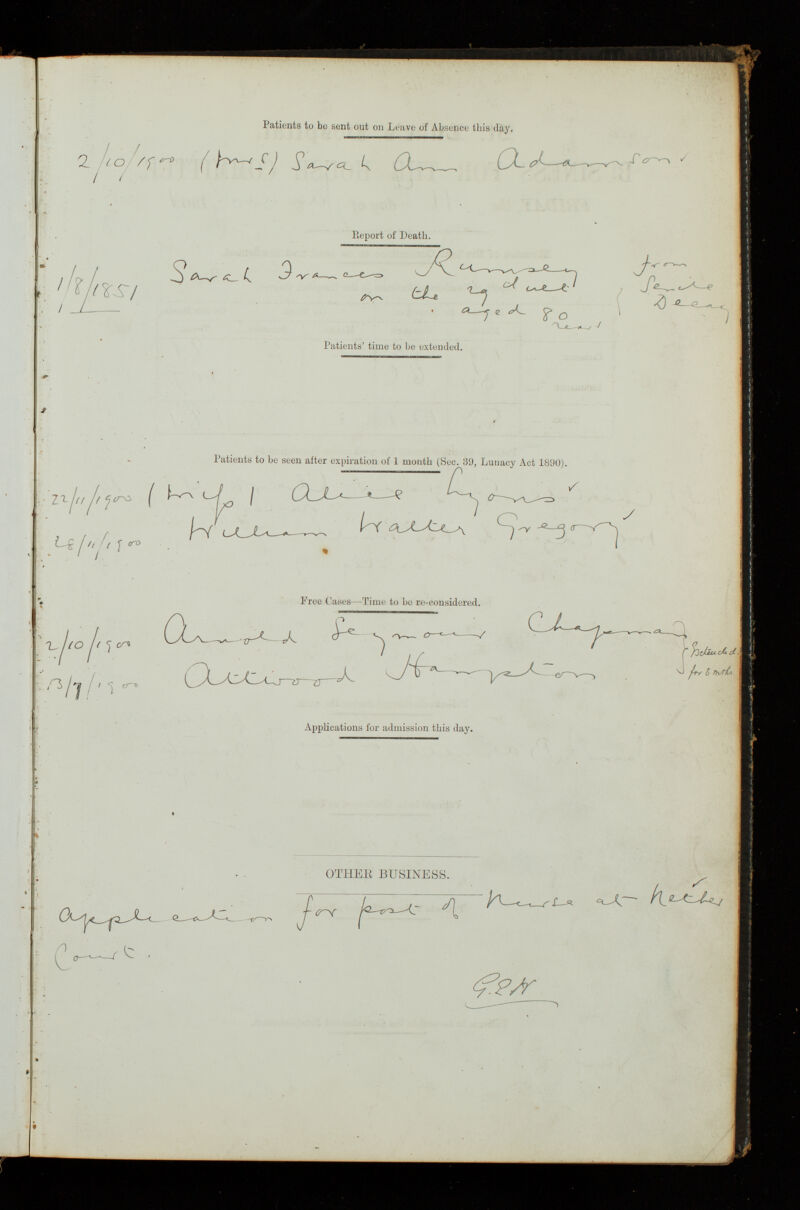 Patients to be sent out on Leave of Absence this day.
2/10/1900 (Mrs) Sarah Ann Adamson ✓
Report of Death.
1/8/1851 Sarah Frances Rumsey from
on the 29th ult Senile
aged 80 Decay
years
Patients' time to be extended.
Patients to be seen after expiration of 1 month (Sec. 39, Lunacy Act 1890).
22/11/1900 (Miss) Alice Lyons ✓
28/11/1900 William Walter Gregory ✓
Free Cases—Time to be re-considered.
2/10/1900 Arnold Seymour Chapman
13/7/1900 Attwood Hampton
Extended
for 6 mths
Applications for admission this day.
OTHER BUSINESS.
Application for post of Nurse at Nether
Court.